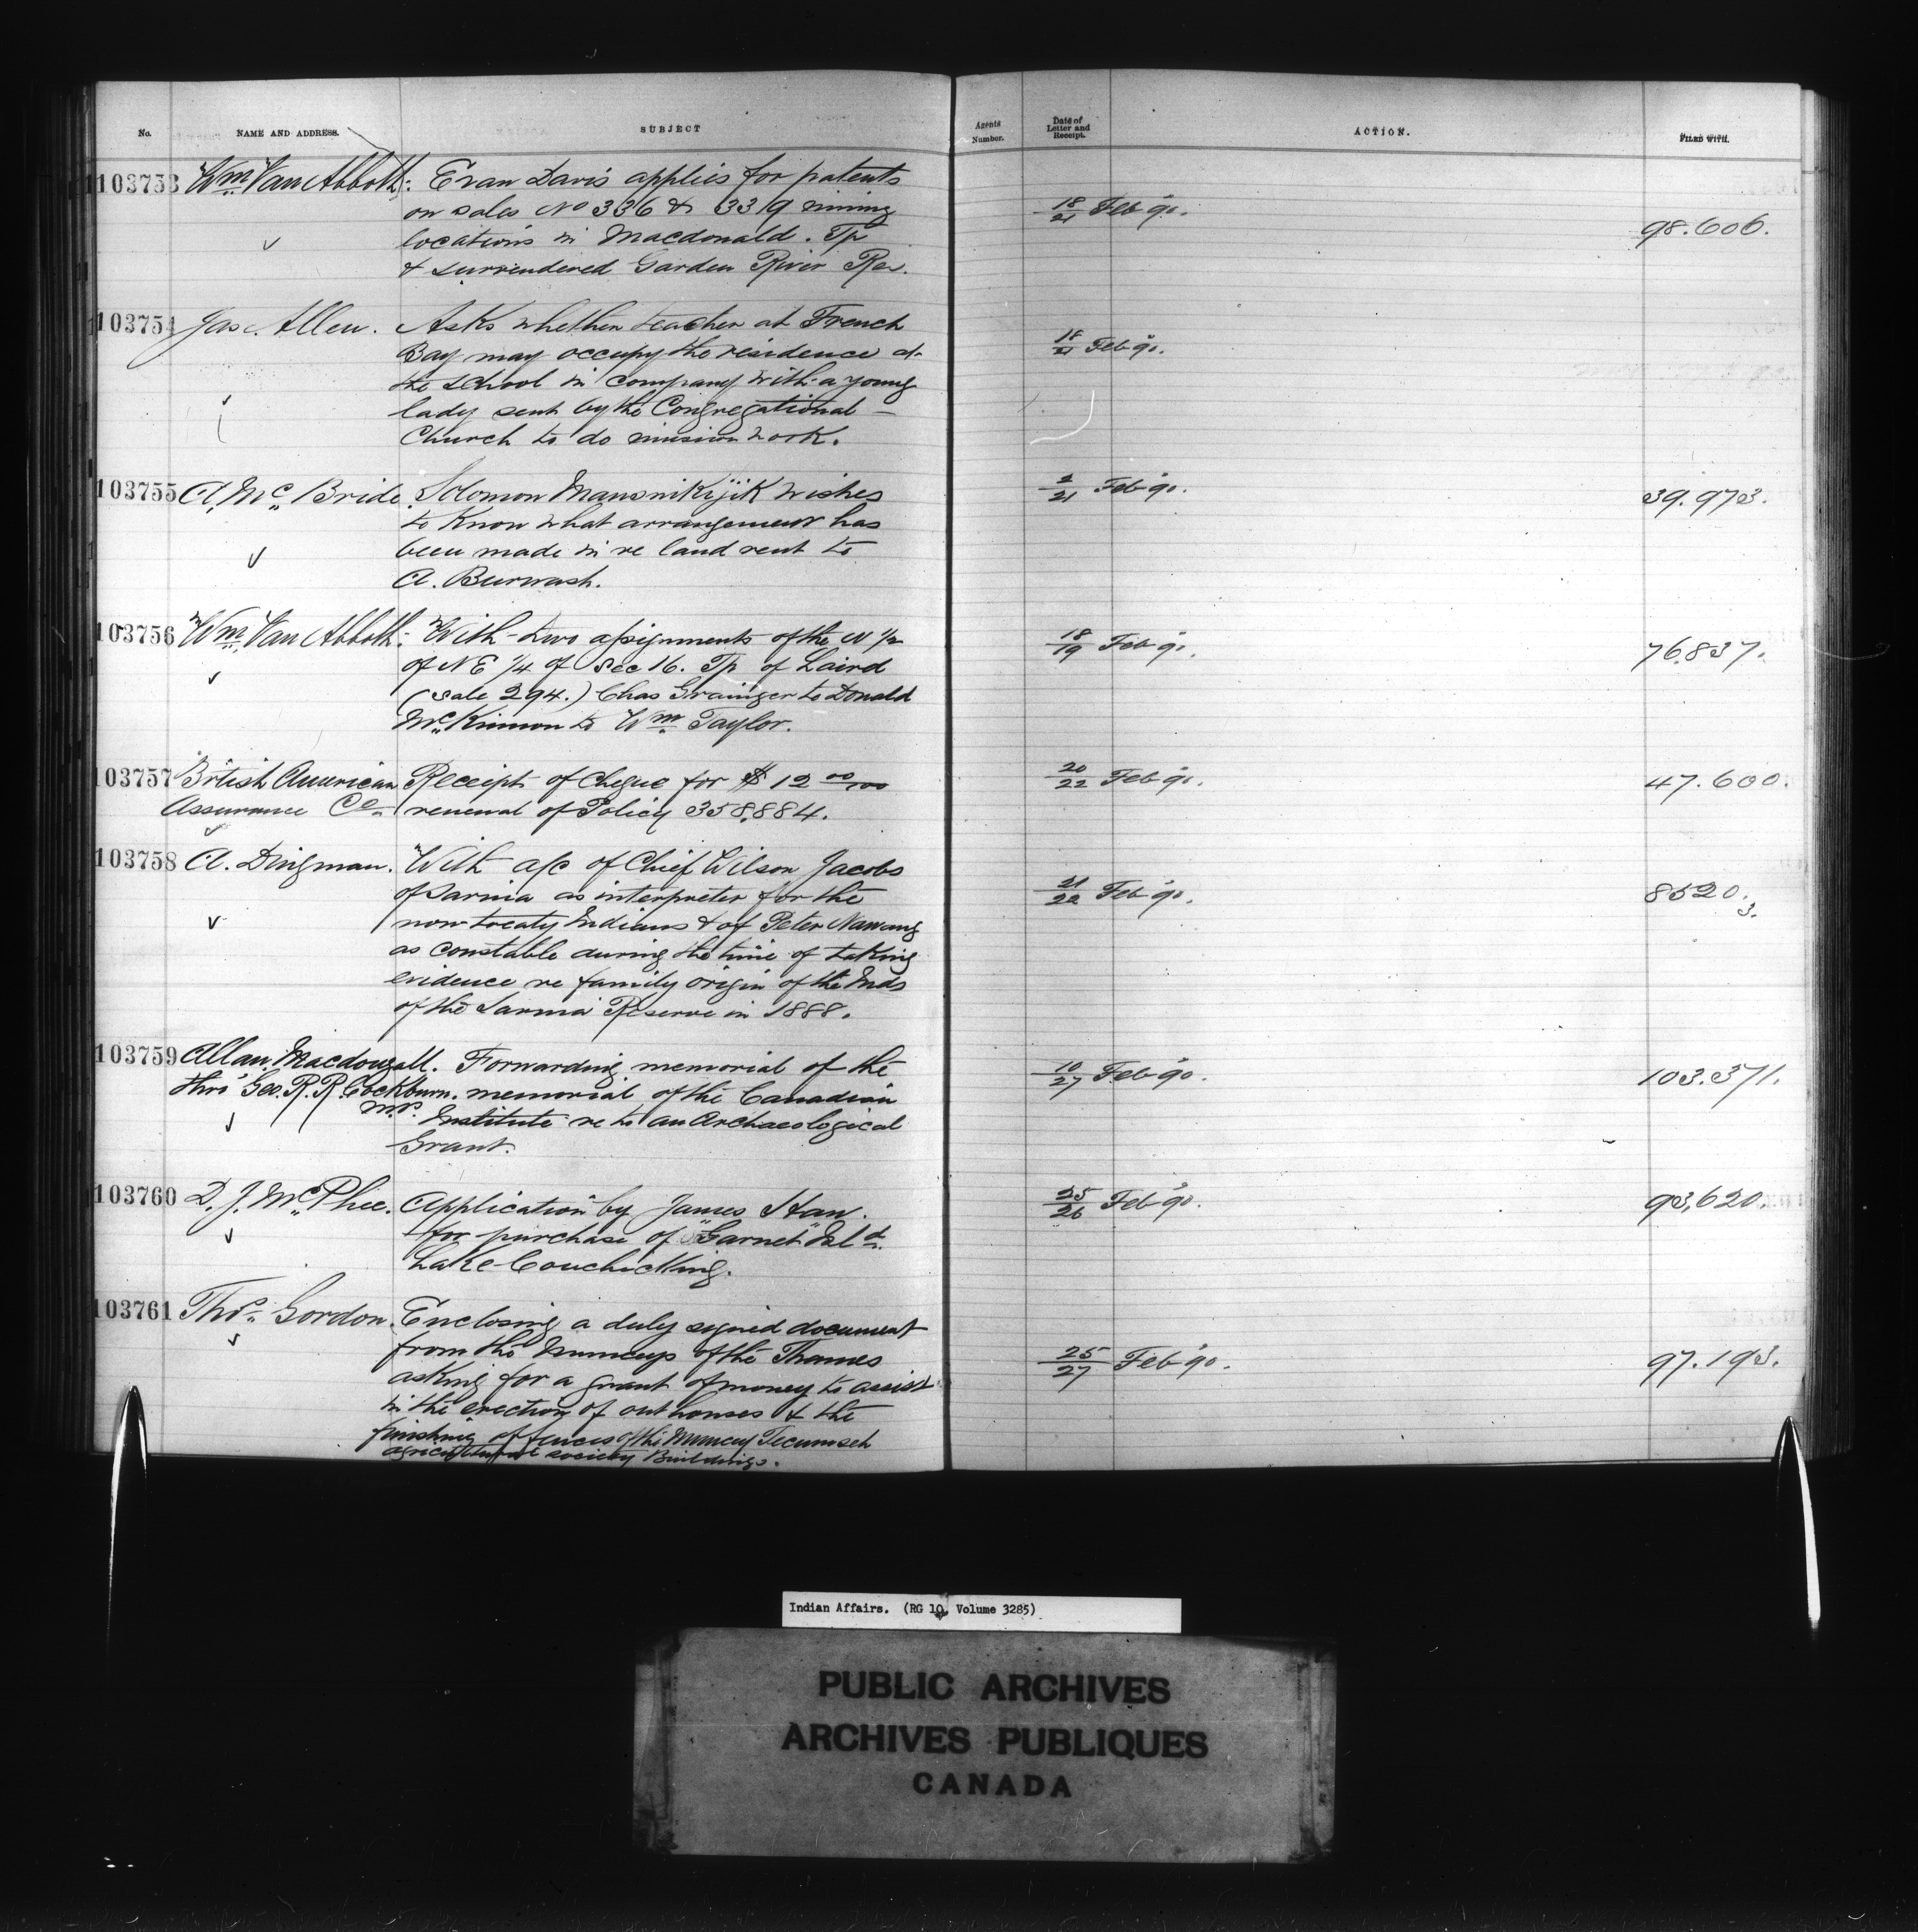 No. NAME AND ADDRESS. SUBJECT Agents Number. Date of Letter and Receipt. ACTION. FILED WITH.
103753 Wm. Van Abbott: Evan Davis applies for patents
on sales No 336 & 339 mining
locations in Macdonald. Tp
& surrendered Garden River Res.
18/21 Feb 90. 98.606.
103754 Jas. Allen. Asks whether teacher at French
Bay may occupy the residence at
the school in company with a young
lady sent by the Congregational
Church to do mission work.
18/21 Feb 90.
103755 A. McBride. Solomon wishes
to know what arrangement has
been made in re land rent to
A. Burwash.
2/21 Feb 90. 39.973.
103756 Wm. Van Abbott: With two assignments of the W 1/2
of NE 1/4 of Sec 16. Tp of Laird
(Sale 294.) Chas Grainger to Donald
McKinnon to Wm. Taylor.
18/19 Feb 90. 76.837.
103757 British American Receipt of Cheque for $12 00/100
Assurance Co. renewal of Policy 358,884.
20/22 Feb 90. 47.600.
103758 A. Dingman. With a/c of Chief Wilson Jacobs
of Sarnia as interpreter for the
non treaty Indians & of Peter Nawang
as constable during the time of taking
evidence re family origin of the Inds
of the Sarnia Reserve in 1888.
21/22 Feb 90. 8520.
3.
103759 Allan Macdougall. Forwarding memorial of the
thro' Geo. R. R. Cockburn. memorial of the Canadian
M.P. Institute re to an Archaeological
Grant.
10/27 Feb 90. 103.371.
103760 D. J. McPhee. Application by James
for purchase of "Garnet" Isld.
Lake Couchiching.
25/26 Feb 90. 93,620.
103761 Thos. Gordon. Enclosing a duly signed document
from the Munceys of the Thames
asking for a grant of money to assist
in the erection of out houses & the
finishing of fences of the Muncey Tecumseh
agricultural society Buildings.
25/27 Feb 90. 97.193.
Indian Affairs. (RG 10, Volume 3285)
PUBLIC ARCHIVES
ARCHIVES PUBLIQUES
CANADA